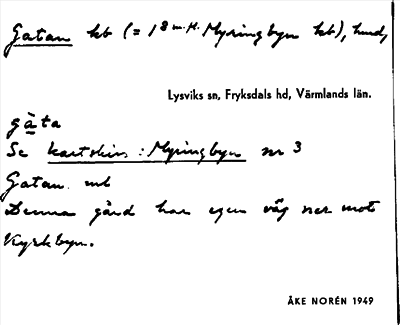 Gatan hb (= 1 8 m.M. Myringbyn hb), hmd,
Lysviks sn, Fryksdals hd, Värmlands län.
gàta
Se kartskiss: Myringbyn nr 3
Gatan. mb
Denna gård har egen väg ner mot
Kyrkbyn.
ÅKE NORÉN 1949